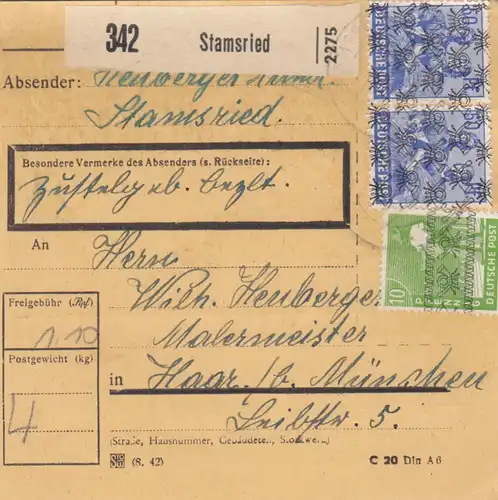 342 Stamsried 2275
Absender: Heuberger
Stamsried.
Besondere Vermerke des Absenders (s. Rückseite):
Zustellg eb. bezlt.
An Herrn
Wilh. Heuberger
Malermeister
in Haar /b. München
Leibstr. 5.
(Straße, Hausnummer, Gebäudeteil, Stockwerk)
Freigebühr (Rpf)
1,10
Postgewicht (kg)
4
(8. 42)
C 20 Din A6
50
DEUTSCHE POST
50
DEUTSCHE POST
10 PFENNIG
DEUTSCHE POST